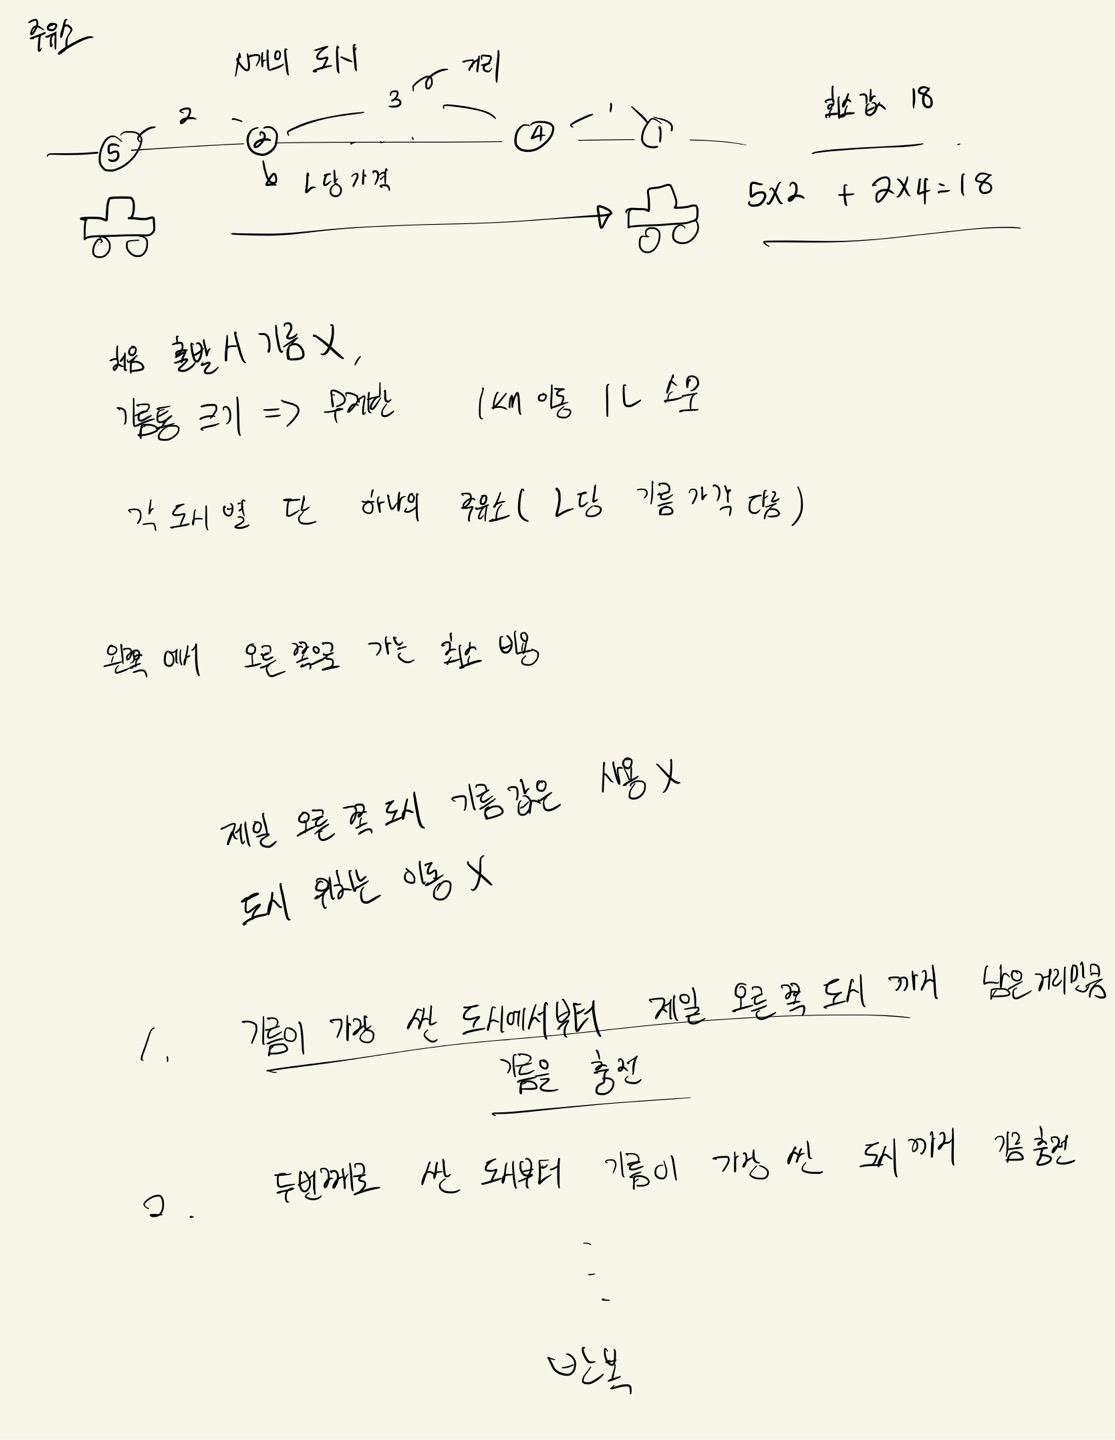 주유소
N개의 도시
거리
2
3
1
5
2
4
1
L당 가격
최소값 18
5X2 + 2X4=18
처음 출발 시 기름 X,
기름통 크기 => 무제한 1km 이동 1L 소모
각 도시별 단 하나의 주유소( L당 기름 가격 다름)
왼쪽에서 오른쪽으로 가는 최소 비용
제일 오른쪽 도시 기름값은 사용 X
도시 위치는 이동 X
1. 기름이 가장 싼 도시에서부터 제일 오른쪽 도시 까지 남은 거리만큼
기름을 충전
2. 두번째로 싼 도시부터 기름이 가장 싼 도시까지 기름 충전
반복